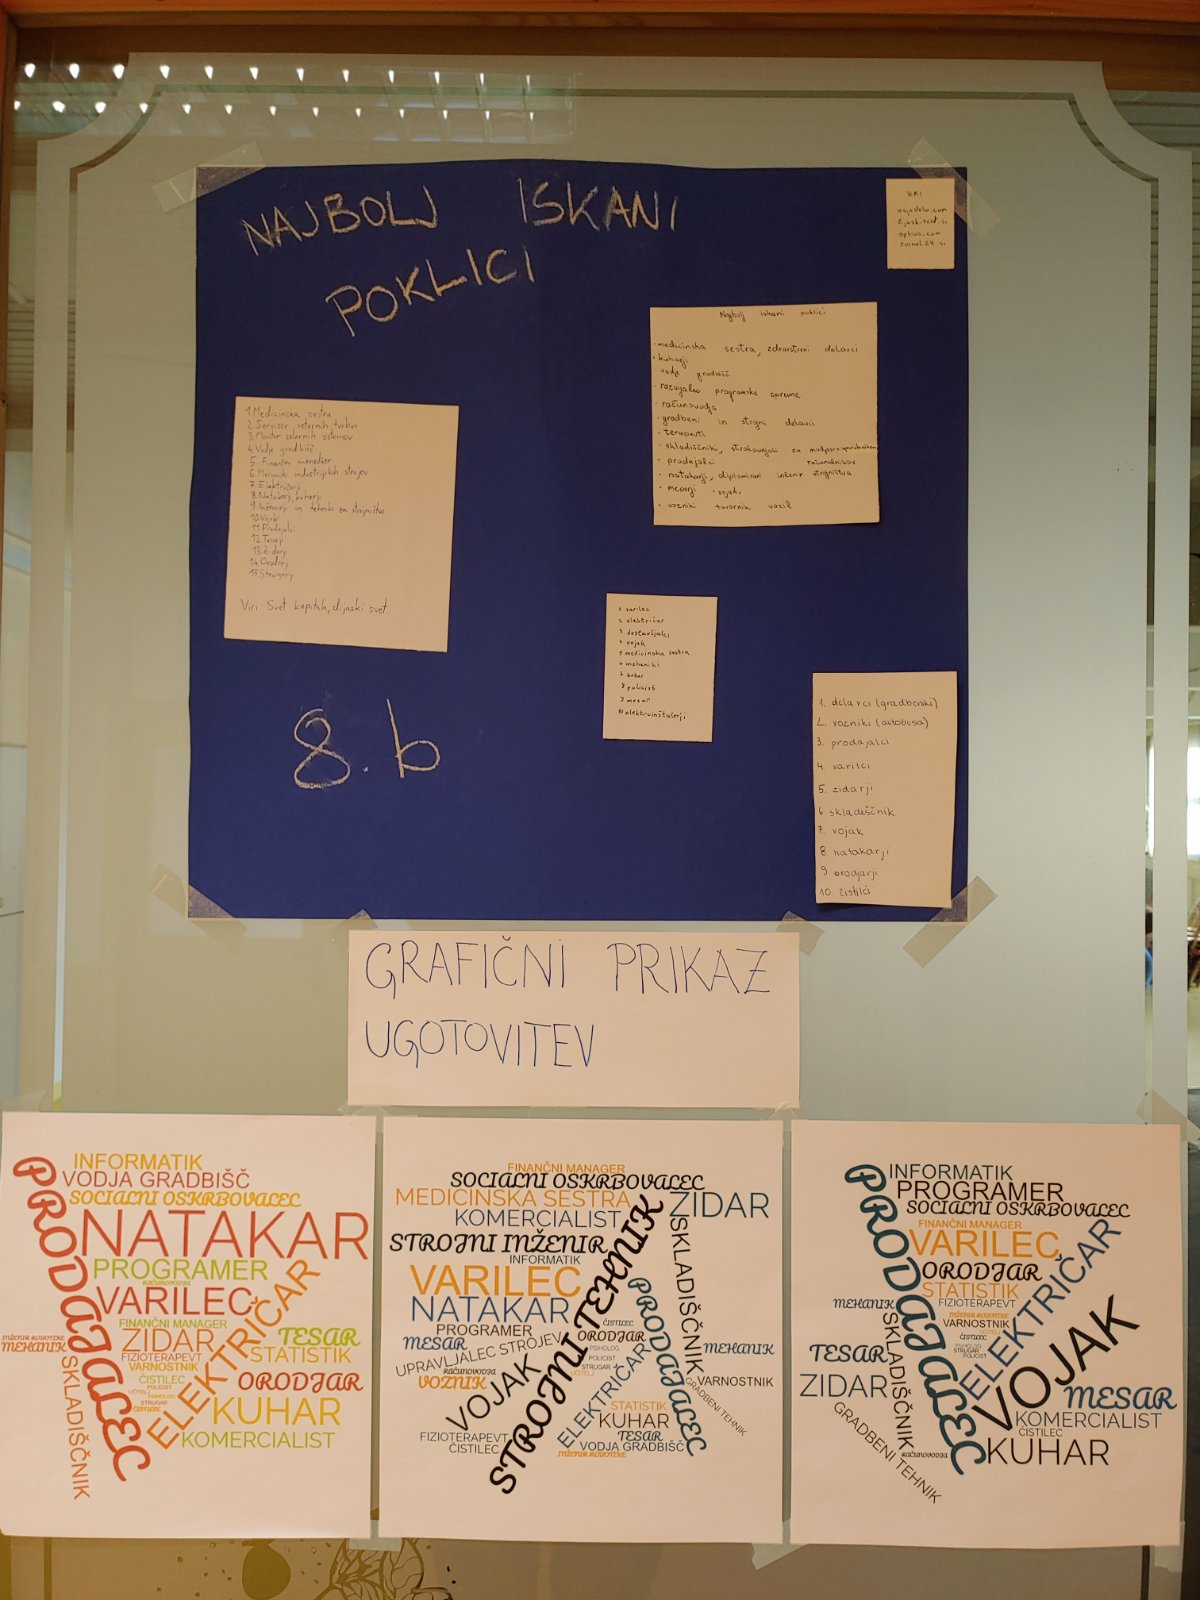 NAJBOLJ ISKANI
POKLICI
VIRI
mojedelo.com
dijaski.svet.si
optius.com
zurnal24.si
Najbolj iskani poklici
• medicinska sestra, zdravstveni delavci
• kuharji
vodje gradbišč
• razvijalec programske opreme
• računovodja
• gradbeni in strojni delavci
• terapevti
• skladiščniki, strokovnjaki za podporo uporabnikom
računalnikov
• prodajalci
• natakarji, diplomirani inženir strojništva
• mesarji • vojaki
• vozniki tovornih vozil
1. Medicinska sestra
2. Serviser veternih turbin
3. Monter solarnih sistemov
4. Vodje gradbišč
5. Finančni menedžer
6. Mehaniki industrijskih strojev
7. Električarji
8. Natakarji, kuharji
9. Inženirji in tehniki za strojništvo
10. Vojak
11. Prodajalci
12. Tesarji
13. Zidarji
14. Orodjarji
15. Strugarji
Viri: Svet kapitala, dijaski svet
1 varilec
2 električar
3 dostavljalci
4 vojak
5 medicinska sestra
6 mehaniki
7 kuhar
8 policist
9 mesar
10 elektroinštalerji
8. b
1. delavci (gradbeniki)
2. vozniki (avtobusa)
3. prodajalci
4. varilci
5. zidarji
6 skladiščnik
7. vojak
8 natakarji
9 orodjarji
10. čistilci
GRAFIČNI PRIKAZ
UGOTOVITEV
INFORMATIK
VODJA GRADBIŠČ
SOCIALNI OSKRBOVALEC
PRODAJALEC
NATAKAR
PROGRAMER
RAČUNOVODJA
VARILEC
ELEKTRIČAR
FINANČNI MANAGER
ZIDAR
TESAR
INŽENIR ROBOTIKE
MEHANIK
FIZIOTERAPEVT
STATISTIK
VARNOSTNIK
SKLADIŠČNIK
ČISTILEC
ORODJAR
POLICIST
UČITELJ
PSIHOLOG
STRUGAR
KUHAR
KOMERCIALIST
FINANČNI MANAGER
SOCIALNI OSKRBOVALEC
MEDICINSKA SESTRA
ZIDAR
KOMERCIALIST
STROJNI TEHNIK
SKLADIŠČNIK
STROJNI INŽENIR
INFORMATIK
VARILEC
PRODAJALEC
NATAKAR
PROGRAMER
ČISTILEC
ORODJAR
MESAR
UPRAVLJALEC STROJEV
PSIHOLOG
MEHANIK
POLICIST
STRUGAR
UČITELJ
RAČUNOVODJA
VOZNIK
ELEKTRIČAR
GRADBENI TEHNIK
VARNOSTNIK
VOJAK
STATISTIK
KUHAR
FIZIOTERAPEVT
TESAR
ČISTILEC
VODJA GRADBIŠČ
INŽENIR ROBOTIKE
INFORMATIK
PROGRAMER
SOCIALNI OSKRBOVALEC
PRODAJALEC
FINANČNI MANAGER
VARILEC
ELEKTRIČAR
ORODJAR
STATISTIK
MEHANIK
FIZIOTERAPEVT
INŽENIR ROBOTIKE
SKLADIŠČNIK
VARNOSTNIK
VOJAK
ČISTILEC
STRUGAR
POLICIST
PSIHOLOG
TESAR
ZIDAR
MESAR
GRADBENI TEHNIK
KOMERCIALIST
ČISTILEC
RAČUNOVODJA
KUHAR